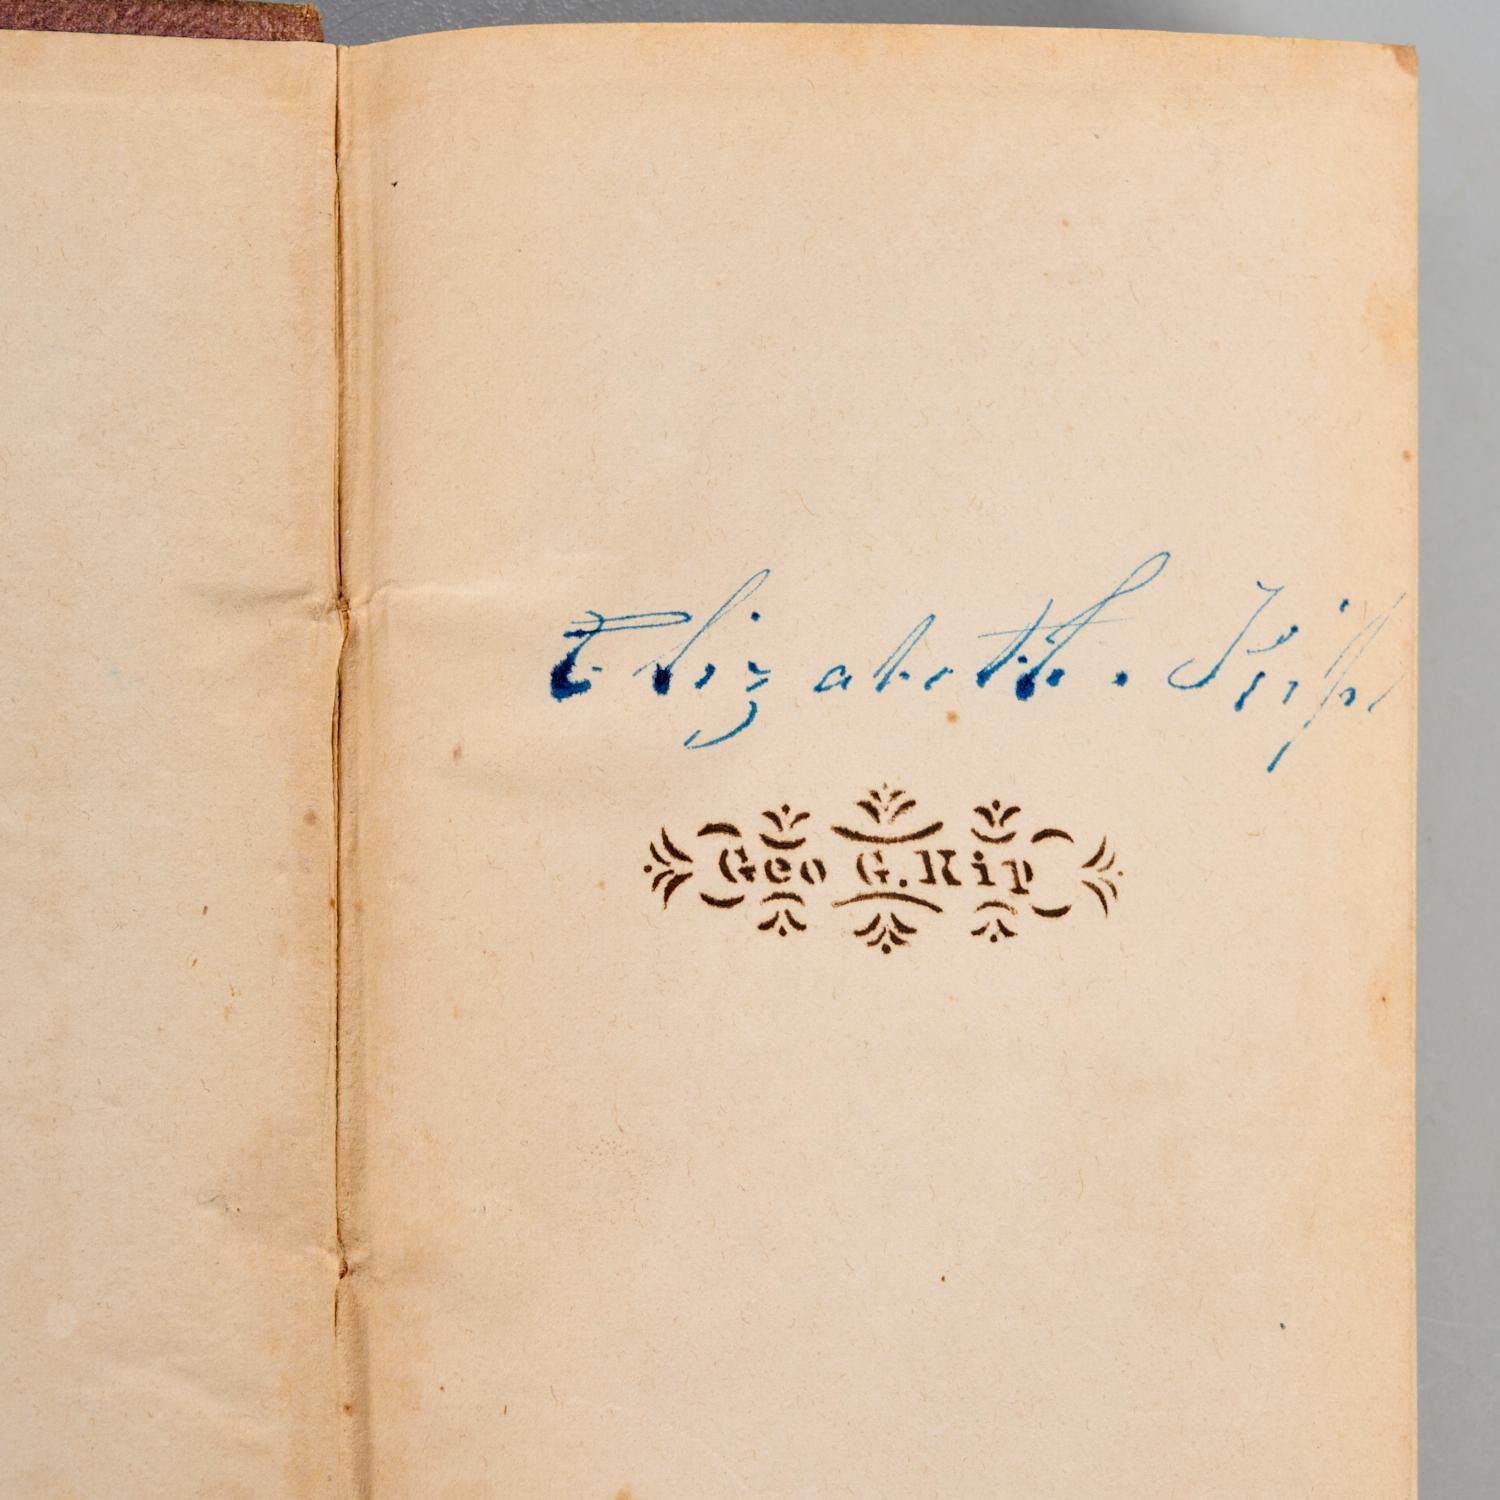 Elizabeth. Kip
Geo G. Kip